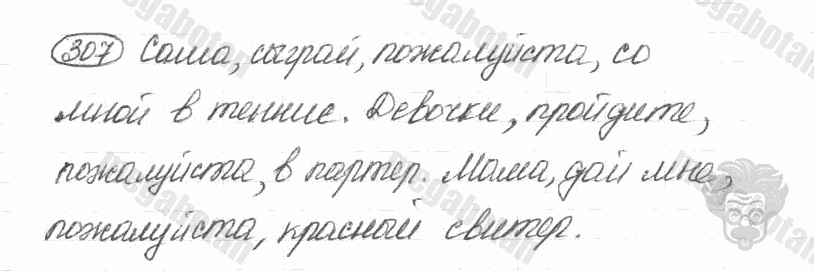 307 Саша, сыграй, пожалуйста, со
мной в теннис. Девочки, пройдите,
пожалуйста, в партер. Мама, дай мне,
пожалуйста, красный свитер.
megabotan
megabotan
megabotan
megabotan
megabotan